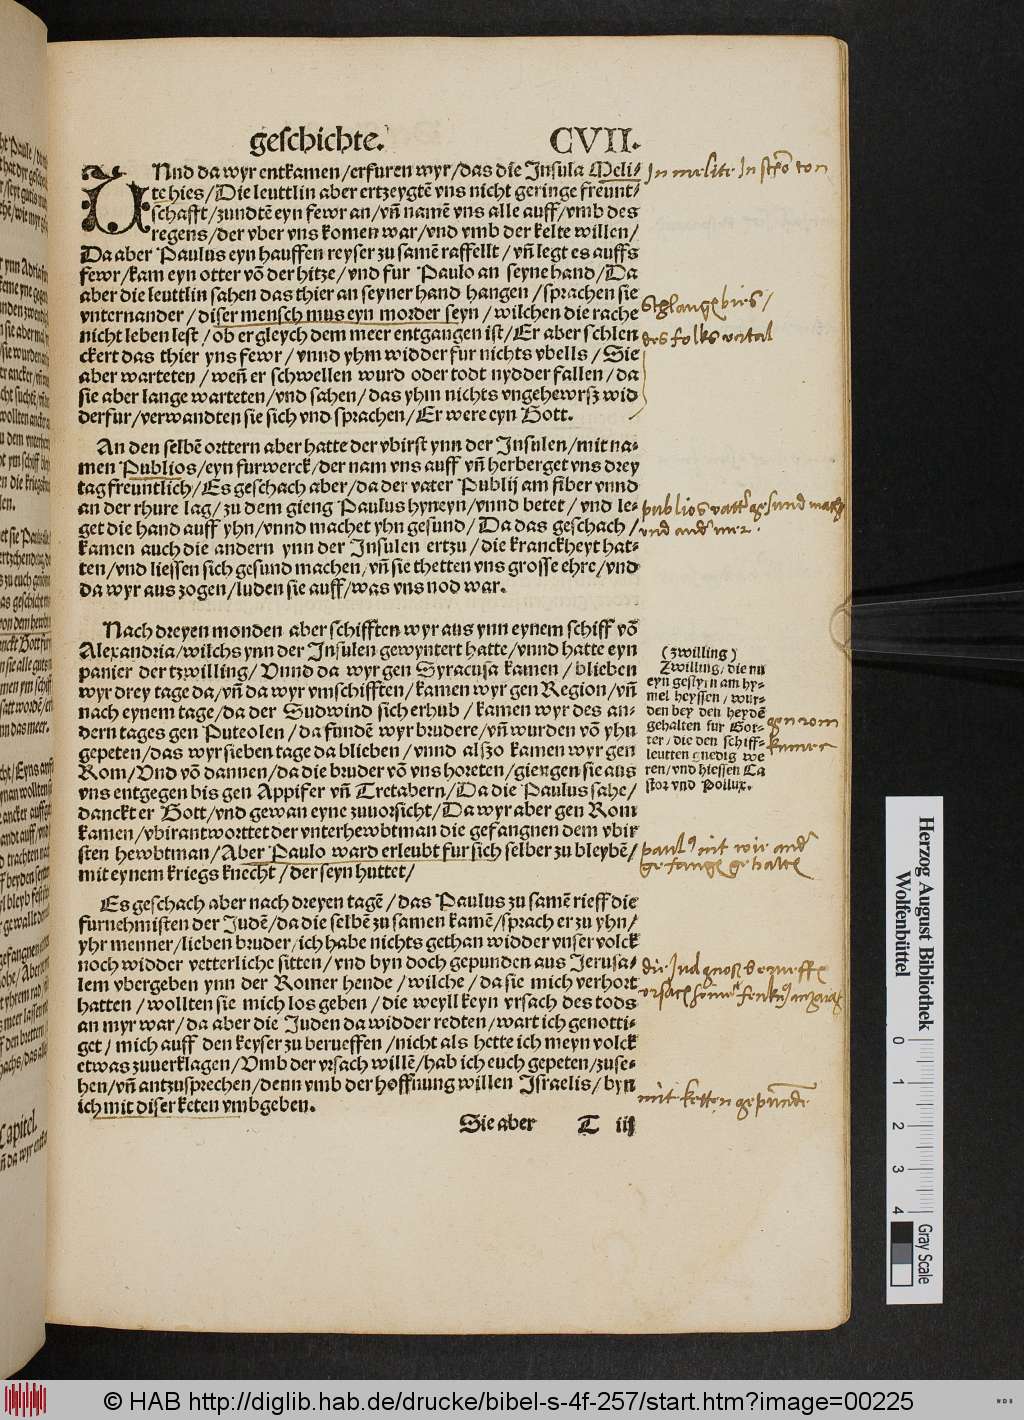 geschichte. CVII.
VNnd da wyr entkamen/erfuren wyr/das die Insula Meli-
te hies/Die leuttlin aber ertzeygtē vns nicht geringe freunt-
schafft/zundtē eyn fewr an/vñ namē vns alle auff/vmb des
regens/der vber vns komen war/vnd vmb der kelte willen/
Da aber Paulus eyn hauffen reyser zu samē raffellt/vñ legt es auffs
fewr/kam eyn otter vō der hitze/vnd fur Paulo an seyne hand/Da
aber die leuttlin sahen das thier an seyner hand hangen/sprachen sie
vnternander/diser mensch mus eyn morder seyn/wilchen die rache
nicht leben lest/ob er gleych dem meer entgangen ist/Er aber schlen
ckert das thier yns fewr/vnnd yhm widder fur nichts vbells/Sie
aber warteten/weñ er schwellen wurd oder todt nydder fallen/da
sie aber lange warteten/vnd sahen/das yhm nichts vngehewrsz wid
derfur/verwandten sie sich vnd sprachen/Er were eyn Gott.
An den selbē orttern aber hatte der vbirst ynn der Insulen/mit na-
men Publios/eyn furwerck/der nam vns auff vñ herberget vns drey
tag freuntlich/Es geschach aber/da der vater Publij am fiber vnnd
an der rhure lag/zu dem gieng Paulus hyneyn/vnnd betet/vnd le-
get die hand auff yhn/vnnd machet yhn gesund/Da das geschach/
kamen auch die andern ynn der Insulen ertzu/die kranckheyt hat-
ten/vnd liessen sich gesund machen/vñ sie thetten vns grosse ehre/vnd
da wyr aus zogen/luden sie auff/was vns nod war.
Nach dreyen monden aber schifften wyr aus ynn eynem schiff vō
Alexandria/wilchs ynn der Insulen gewyntert hatte/vnnd hatte eyn
panier der tzwilling/Vnnd da wyr gen Syracusa kamen/blieben
wyr drey tage da/vñ da wyr vmschifften/kamen wyr gen Region/vñ
nach eynem tage/da der Sudwind sich erhub/kamen wyr des an-
dern tages gen Puteolen/da fundē wyr brudere/vñ wurden vō yhn
gepeten/das wyr sieben tage da blieben/vnnd alszo kamen wyr gen
Rom/Vnd vō dannen/da die bruder vō vns horeten/giengen sie aus
vns entgegen bis gen Appifer vñ Tretabern/Da die Paulus sahe/
danckt er Gott/vnd gewan eyne zuuorsicht/Da wyr aber gen Rom
kamen/vbirantworttet der vnterhewbtman die gefangnen dem vbir
sten hewbtman/Aber Paulo ward erleubt fur sich selber zu bleybē/
mit eynem kriegs knecht/der seyn huttet/
Es geschach aber nach dreyen tagē/das Paulus zu samē rieff die
furnehmisten der Judē/da die selbē zu samen kamē/sprach er zu yhn/
yhr menner/lieben bruder/ich habe nichts gethan widder vnser volck
noch widder vetterliche sitten/vnd byn doch gepunden aus Jerusa-
lem vbergeben ynn der Romer hende/wilche/da sie mich verhort
hatten/wollten sie mich los geben/die weyll keyn vrsach des tods
an myr war/da aber die Juden da widder redten/wart ich genotti-
get/mich auff den keyser zu berueffen/nicht als hette ich meyn volck
etwas zuuerklagen/Vmb der vrsach willē/hab ich euch gepeten/zuse-
hen/vñ antzusprechen/denn vmb der hoffnung willen Israelis/byn
ich mit diser keten vmbgeben.
Sie aber T iij
In melite In
schlangebies/
des folks
publios vatter gesund mach
vnd ander mer.
(zwilling)
Zwilling/die nu
eyn gestyrn am hy-
mel heyssen/wur-
den bey den heydē
gehalten fur Got-
ter/die den schiff-
leutten gnedig we
ren/vnd hiessen Ca
stor vnd Pollux.
gen rom
kumet
paulus nit wie ander
gefangen gehalten
mit ketten gepunde
Herzog August Bibliothek
Wolfenbüttel
0 1 2 3 4
Gray Scale
© HAB http://diglib.hab.de/drucke/bibel-s-4f-257/start.htm?image=00225